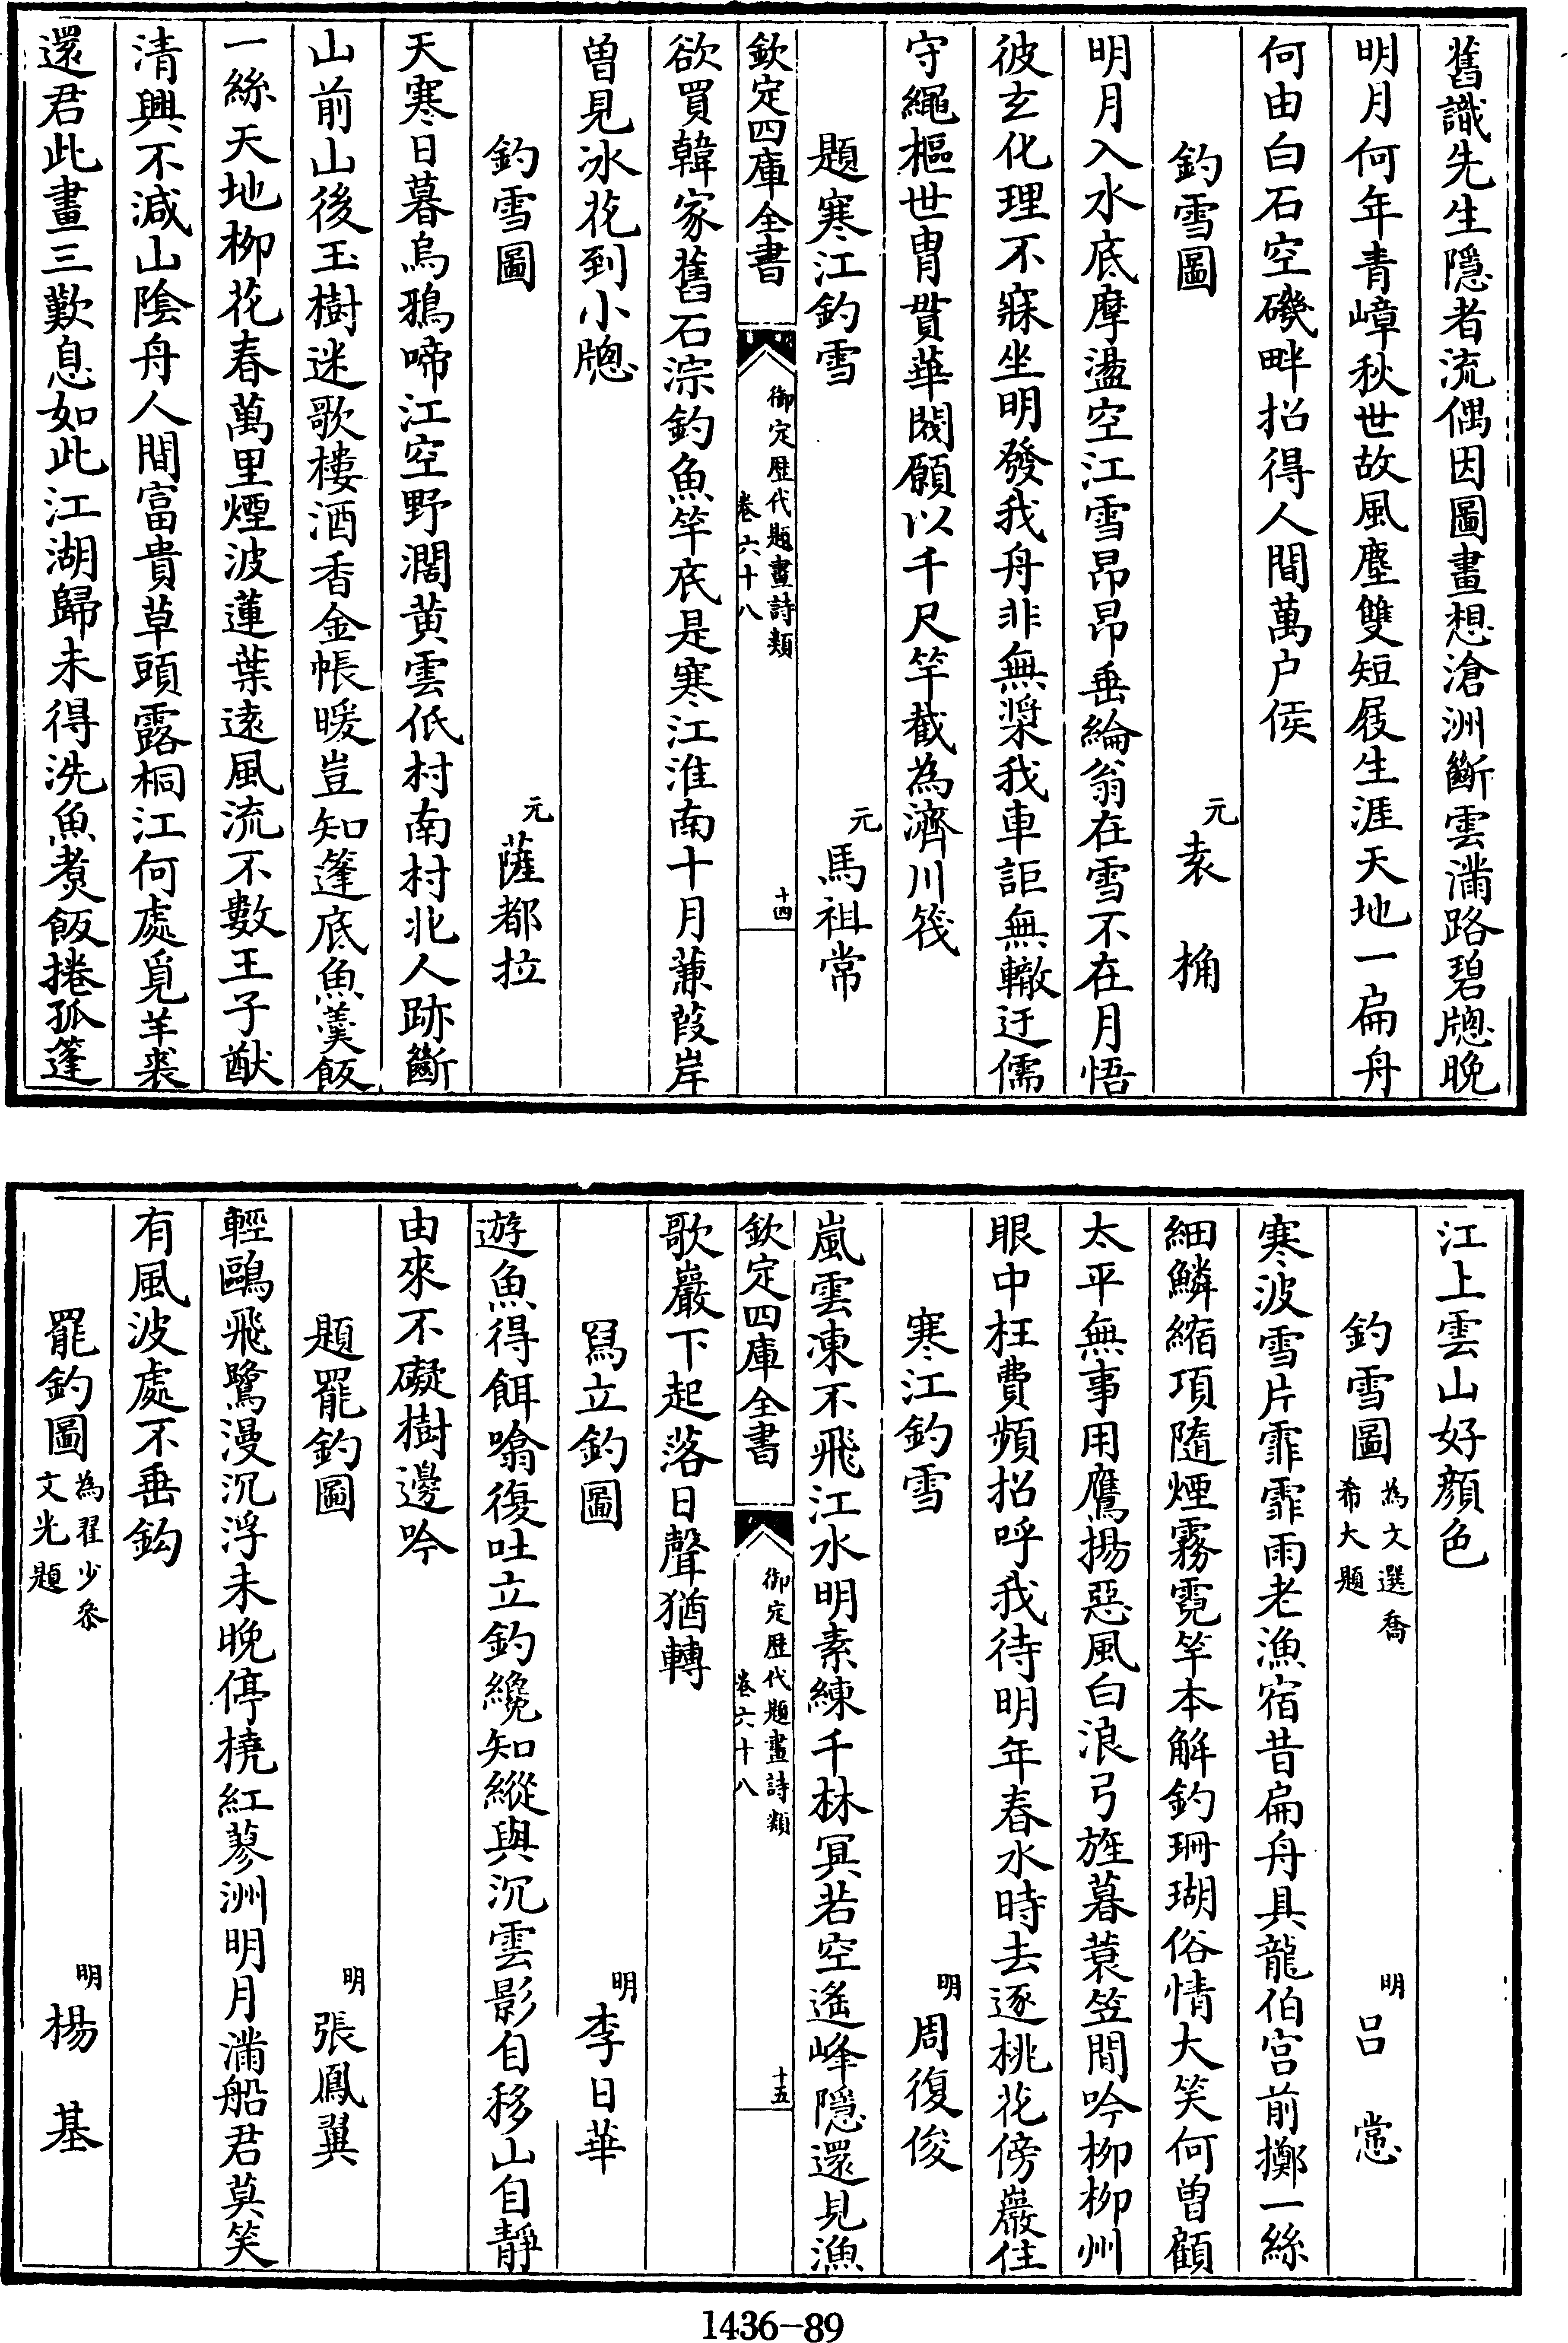 舊識先生隱者流偶因圖畫想滄洲斷雲滿路碧牕晚
明月何年青嶂秋世故風塵雙短屐生涯天地一扁舟
何由白石空磯畔招得人間萬户侯
釣雪圖 元袁桷
明月入水底摩盪空江雪昂昂垂綸翁在雪不在月悟
彼玄化理不寐坐明發我舟非無槳我車詎無轍迂儒
守繩樞世胄貫華閥願以千尺竿截為濟川筏
題寒江釣雪 元馬祖常
欽定四庫全書 御定歴代題畫詩類 卷六十八 十四
欲買韓家舊石淙釣魚竿底是寒江淮南十月蒹葭岸
曽見冰花到小牎
釣雪圖 元薩都拉
天寒日暮烏鴉啼江空野濶黄雲低村南村北人跡斷
山前山後玉樹迷歌樓酒香金帳暖豈知篷底魚羮飯
一絲天地柳花春萬里煙波蓮葉逺風流不數王子猷
清興不減山隂舟人間富貴草頭露桐江何處覓羊裘
還君此畫三歎息如此江湖歸未得洗魚煑飯捲孤篷
江上雲山好顔色
釣雪圖 為文選喬希大題 明吕㦂
寒波雪片霏霏雨老漁宿昔扁舟具龍伯宫前擲一絲
細鱗縮項隨煙霧霓竿本解釣珊瑚俗情大笑何曽顧
太平無事用鷹揚惡風白浪弓旌暮蓑笠間吟柳柳州
眼中枉費頻招呼我待明年春水時去逐桃花傍巖住
寒江釣雪 明周復俊
嵐雲凍不飛江水明素練千林冥若空遙峰隱還見漁
欽定四庫全書 御定歴代題畫詩類 卷六十八 十五
歌巖下起落日聲猶轉
冩立釣圖 明李日華
遊魚得餌噏復吐立釣纔知縱與沉雲影自移山自靜
由來不礙樹邊吟
題罷釣圖 明張鳳翼
輕鷗飛鷺漫沉浮未晚停橈紅蓼洲明月滿船君莫笑
有風波處不垂鈎
罷釣圖 為翟少叅文光題 明楊基
1436-89